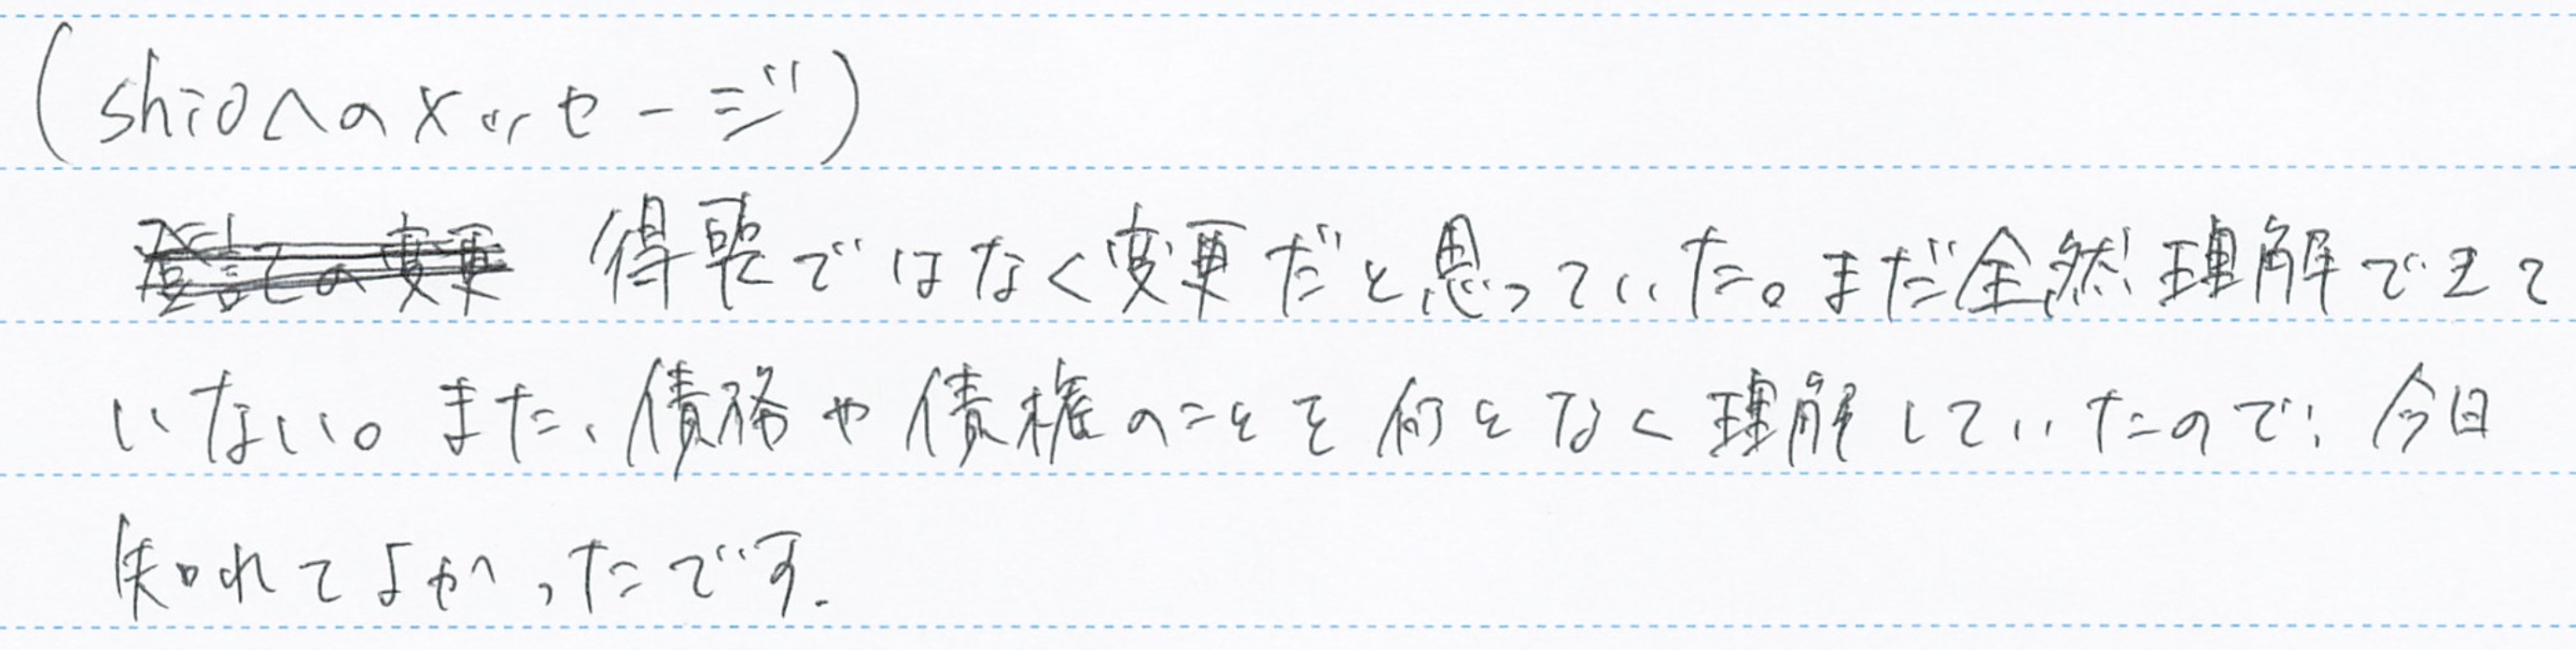 (shioへのメッセージ)
得喪ではなく変更だと思っていた。まだ全然理解できて
いない。また、債務や債権のことを何となく理解していたので、今日
知れてよかったです.